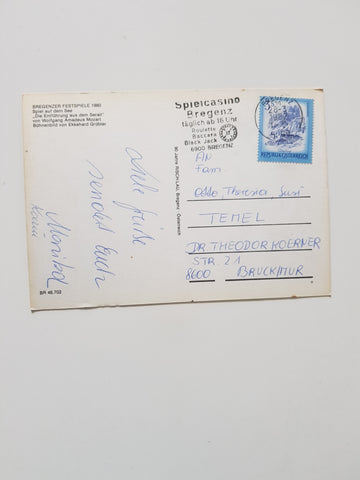 BREGENZER FESTSPIELE 1980
Spiel auf dem See
„Die Entführung aus dem Serail"
von Wolfgang Amadeus Mozart
Bühnenbild von Ekkehard Grübler
Spielcasino
Bregenz
täglich ab 16 Uhr
Roulette
Baccara
Black Jack
6900 BREGENZ
REPUBLIK ÖSTERREICH
sendet Euch
Monika
AN
Fam.
Otto Theresia, Susi
TEMEL
DR THEODOR KOERNER
STR. 21
8600 BRUCK/MUR
BR 46.702